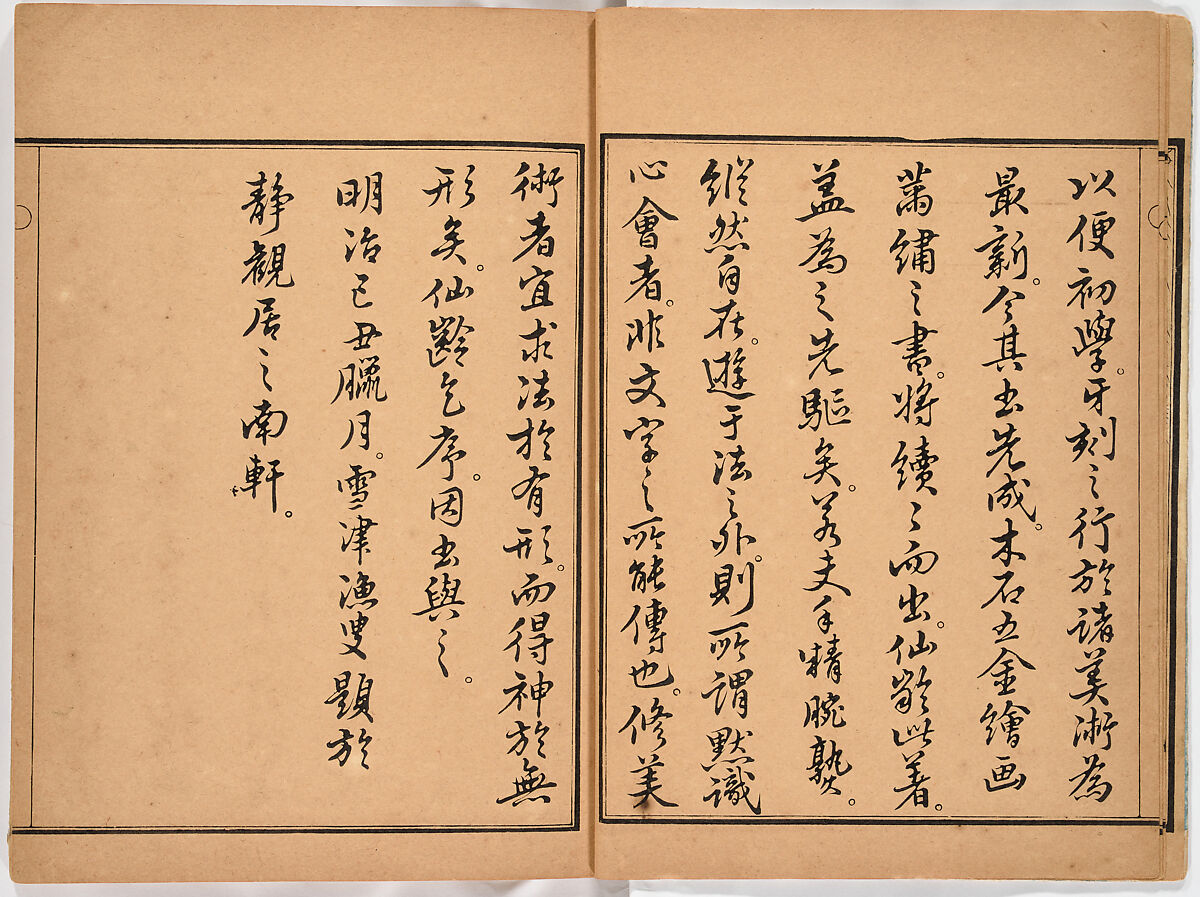 以便初學。牙刻之行於諸美術為
最新。今其書先成。木石五金繪画
蒔繡之書。將續々而出。仙齡此著。
蓋為之先驅矣。若夫手精腕熟。
縱然自在。遊于法之外。則所謂默識
心會者。非文字之所能傳也。修美
術者宜求法於有形。而得神於無
形矣。仙齡乞序。因書與之。
明治己丑臘月。雪津漁叟題於
靜觀居之南軒。